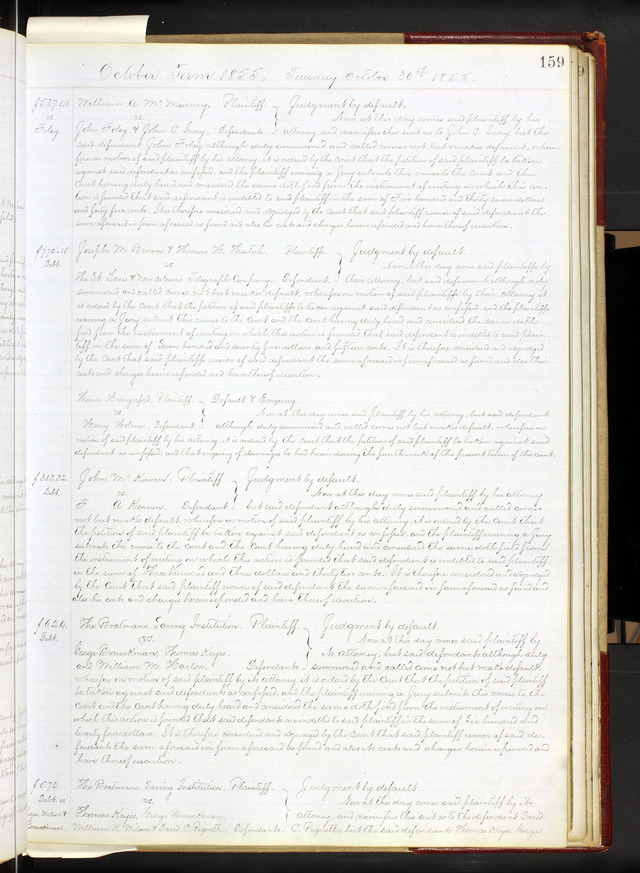 159
October Term 1855. Tuesday October 30th 1855.
$537.45 William A. McMurray, Plaintiff } Judgment by default.
vs. vs. Now at this day comes said plaintiff by his
Foley John Foley & John O. Ivory. Defendants. attorney, and dismisses this suit as to John O. Ivory, but the
said defendant John Foley although duly summoned and called comes not but makes default, where-
fore on motion of said plaintiff by his attorney, it is ordered by the Court that the petition of said plaintiff be taken
against said defendant as confessed, and the plaintiff waiving a Jury submits this cause to the Court and the
Court having duly heard and considered the same doth find from the instrument of writing on which this ac-
tion is founded that said defendant is indebted to said plaintiff in the sum of Five hundred and thirty seven dollars
and forty five cents. It is therefore considered and adjudged by the Court that said plaintiff recover of said defendant the
sum aforesaid in form aforesaid as found and also his costs and charges herein expended and have thereof execution.
$775.15 Joseph M. Brown & Thomas H. Plaintiffs. } Judgment by default.
Debt. vs Now at this day come said plaintiffs by
The St. Louis & New Orleans Telegraph Company. Defendant. their attorney, but said defendant although duly
summoned and called comes not but makes default, wherefore on motion of said plaintiffs by their attorney it
is ordered by the Court that the petition of said plaintiffs be taken against said defendant as confessed, and the plaintiffs
waiving a Jury submit this cause to the Court and the Court having duly heard and considered the same doth
find from the instrument of writing on which this action is founded that said defendant is indebted to said plain-
tiffs in the sum of Seven hundred and seventy five dollars and fifteen cents. It is therefore considered and adjudged
by the Court that said plaintiffs recover of said defendant the sum aforesaid in form aforesaid as found and also their
costs and charges herein expended and have thereof execution.
Thomas Hungerford, Plaintiff } Default & Enquiry.
vs. Now at this day comes said plaintiff by his attorney, but said defendant
Henry Holmes, Defendant. although duly summoned and called comes not but makes default, wherefore on
motion of said plaintiff by his attorney, it is ordered by the Court that the petition of said plaintiff be taken against said
defendant as confessed, and that enquiry of damages be had herein during the fourth week of the present term of this court.
$303.32 John McKeown, Plaintiff } Judgment by default.
Debt. vs. Now at this day comes said plaintiff by his attorney
F A. Kennon, Defendant. but said defendant although duly summoned and called comes
not but makes default, wherefore on motion of said plaintiff by his attorney, it is ordered by the Court that
the petition of said plaintiff be taken against said defendant as confessed, and the plaintiff waiving a Jury
submits this cause to the Court and the Court having duly heard and considered the same doth find from
the instrument of writing on which this action is founded that said defendant is indebted to said plaintiff
in the sum of Three hundred and three dollars and thirty two cents. It is therefore considered and adjudged
by the Court that said plaintiff recover of said defendant the sum aforesaid in form aforesaid as found and
also his costs and charges herein expended and have thereof execution.
$624. The Boatmans Saving Institution, Plaintiff } Judgment by default.
Debt. vs. Now at this day comes said plaintiff by
George Brauckman, Thomas Keyes its attorney, but said defendants although duly
and William M. Harlow. Defendants. summoned and called come not but make default,
wherefore on motion of said plaintiff by its attorney it is ordered by the Court that the petition of said plaintiff
be taken against said defendants as confessed, and the plaintiff waiving a Jury submits this cause to the
Court and the Court having duly heard and considered the same doth find from the instrument of writing on
which this action is founded that said defendants are indebted to said plaintiff in the sum of Six hundred and
twenty four dollars. It is therefore considered and adjudged by the Court that said plaintiff recover of said de-
fendants the sum aforesaid in form aforesaid as found and also its costs and charges herein expended and
have thereof execution.
$572. The Boatmans Saving Institution, Plaintiff. } Judgment by default.
Debt. vs vs. Now at this day comes said plaintiff by its
Keyes, Wilson & Thomas Keyes, George Brauckman, attorney, and dismisses this suit as to the defendant David
Brauckman William H. Wilson & David C. Pignotte, Defendants. C. Pignotte, but the said defendants Thomas Keyes, George